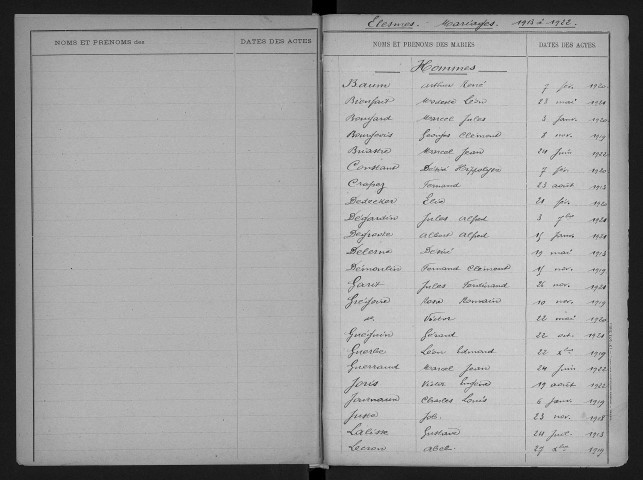 NOMS ET PRENOMS des DATES DES ACTES
Elesmes. Mariages. 1913 à 1922.
NOMS ET PRÉNOMS DES MARIÉS DATES DES ACTES
Hommes
Baum Arthur René 7 fév. 1920
Bienfait Modeste Léon 23 mai 1921
Bonnard Marcel Jules 3 janv. 1920
Bourgeois Georges Clément 8 nov. 1919
Briastre Marcel Jean 24 juin 1922
Constant Désiré Hippolyte 7 fév. 1920
Crapez Fernand 23 août 1913
Dedecker Élie 21 fév. 1920
Dégardin Jules Alfred 3 7bre 1921
Degrande Albert Alfred 15 janv. 1921
Delerue Désiré 19 mai 1913
Démoulin Fernand Clément 15 nov. 1919
Garit Jules Ferdinand 26 nov. 1921
Grégoire Romain 10 nov. 1919
d° Victor 22 mai 1920
Guéguin Gérard 22 oct. 1921
Guerbe Léon Edmond 22 Xbre 1919
Guerrand Marcel Jean 24 juin 1922
Joris Victor Eugène 19 août 1922
Charles Louis 6 janv. 1919
Job 23 nov. 1918
Lalisse Gustave 24 juil. 1913
Lecron Abel 27 Xbre 1919